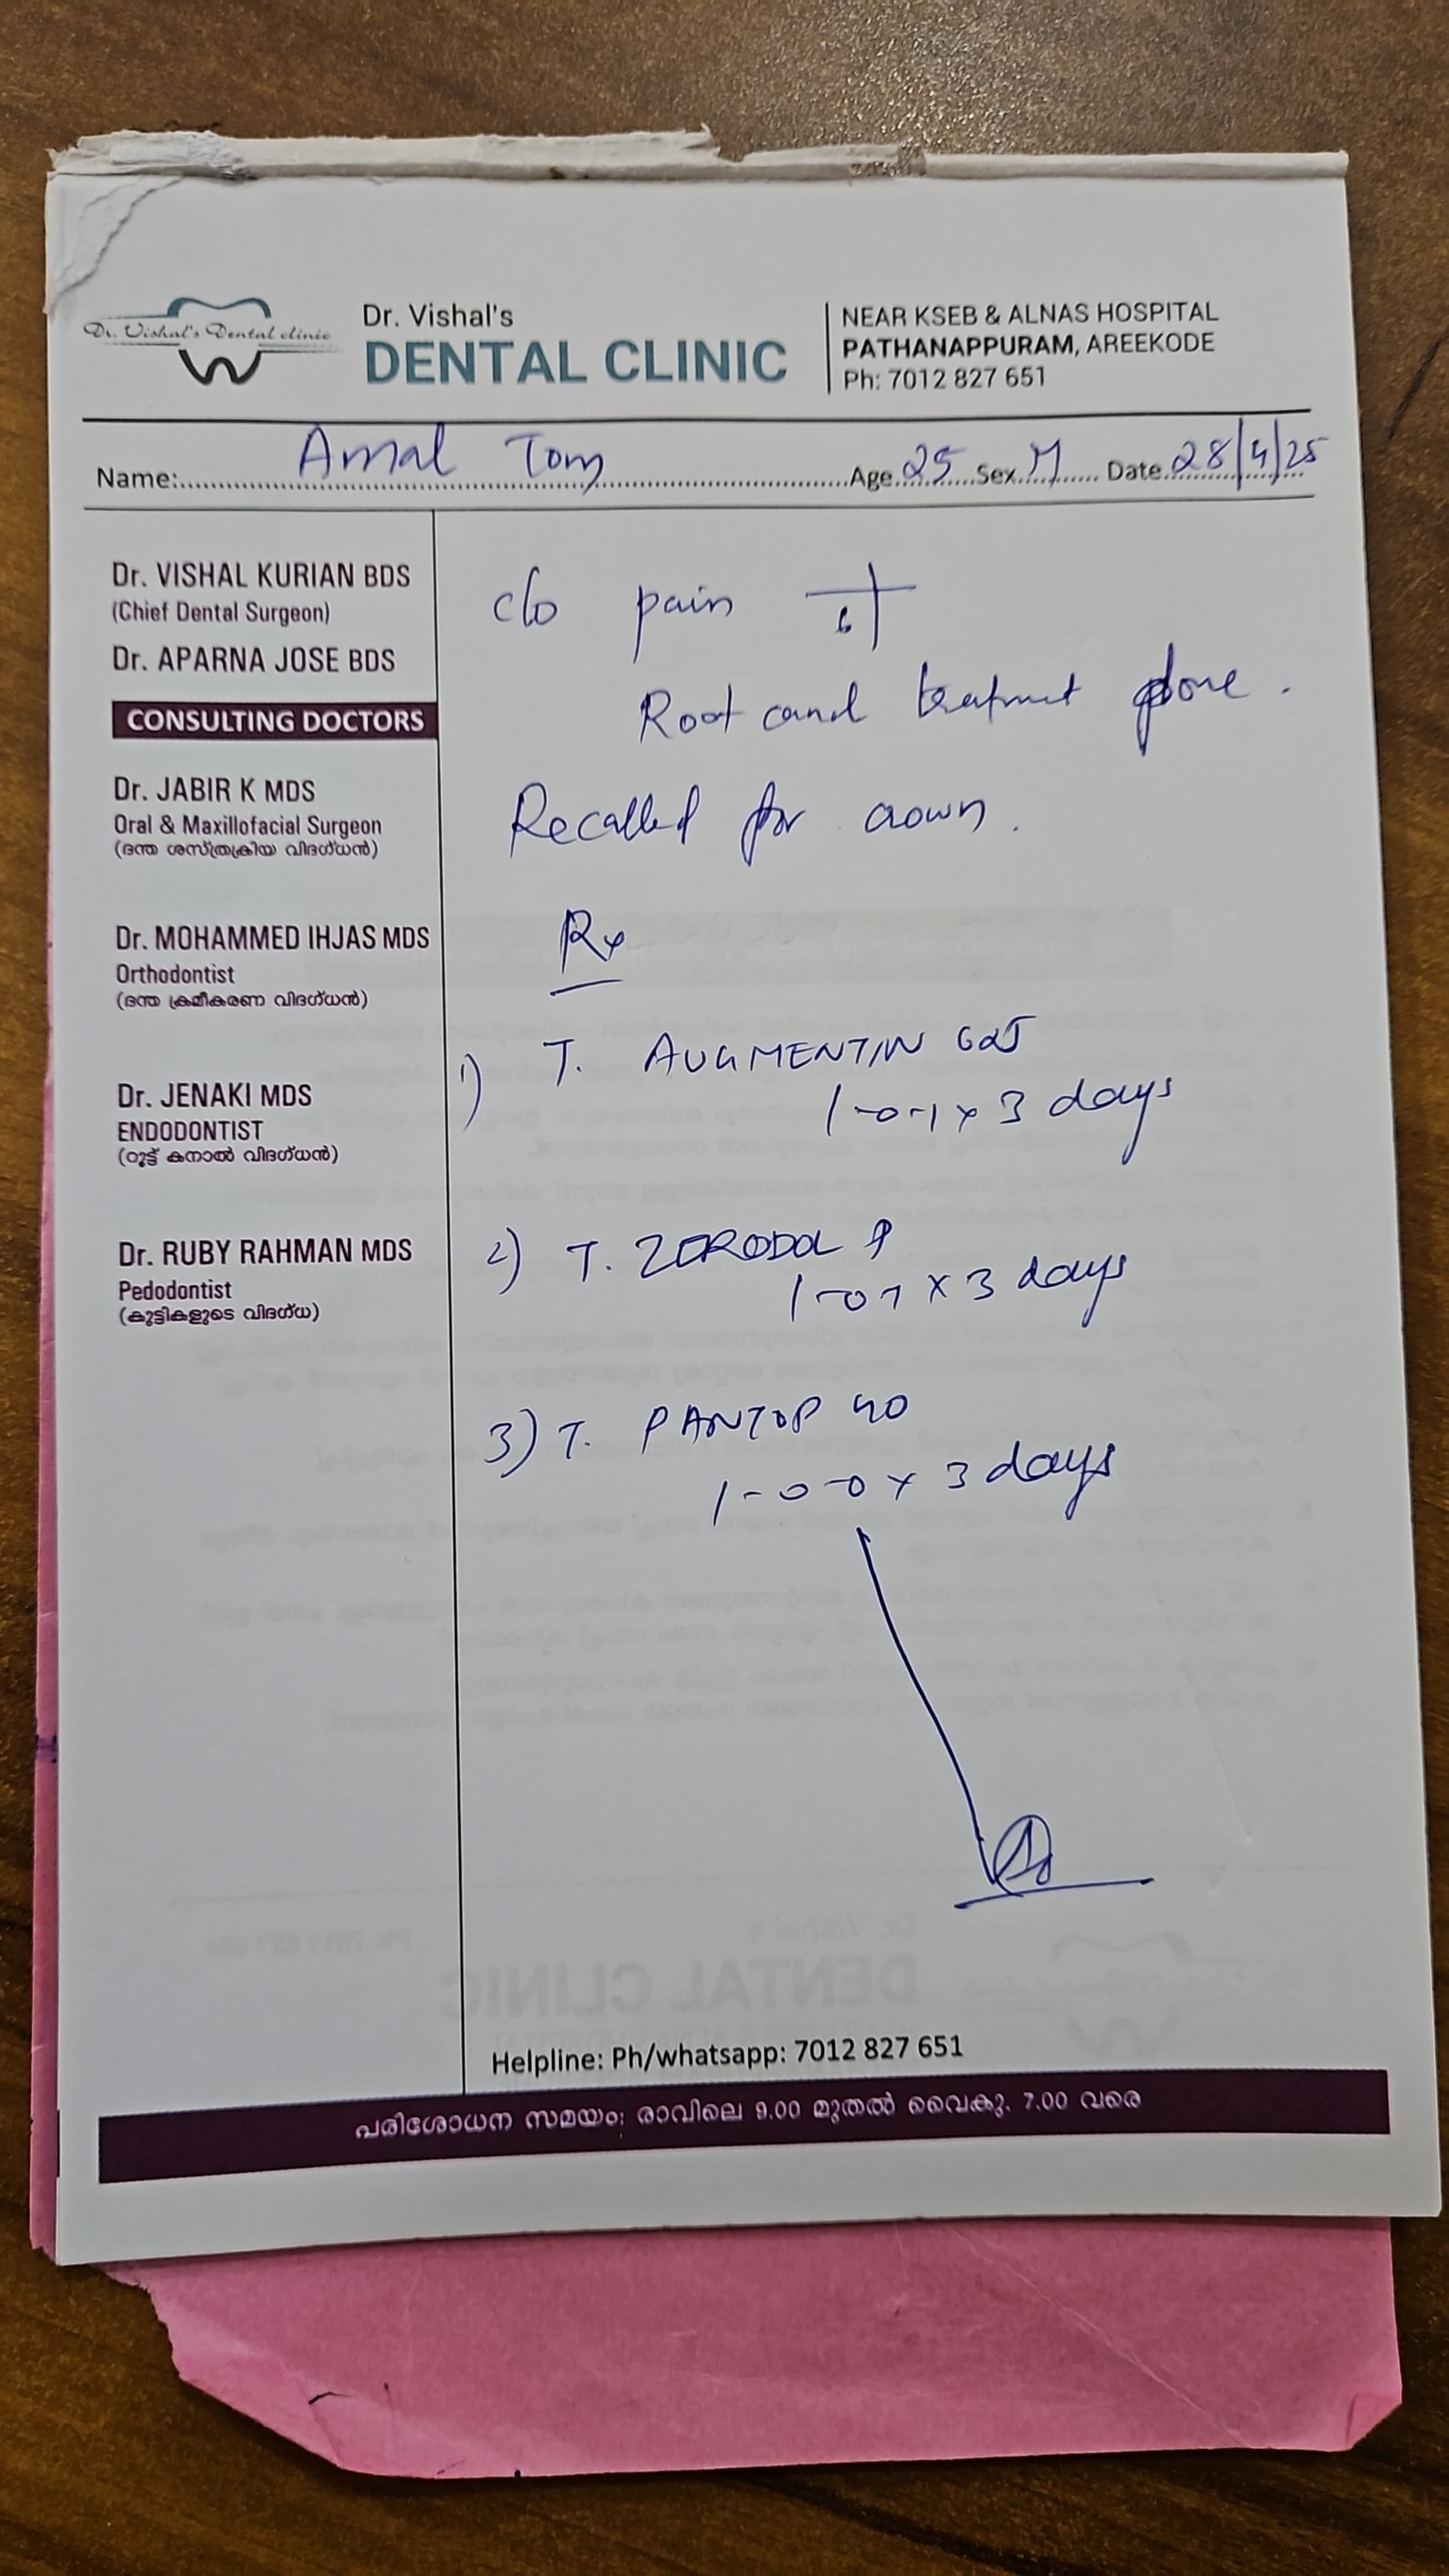 Dr. Vishal's Dental clinic
Dr. Vishal's
DENTAL CLINIC
NEAR KSEB & ALNAS HOSPITAL
PATHANAPPURAM, AREEKODE
Ph: 7012 827 651
Name: Amal Tom Age 25 Sex M Date 28/4/25
Dr. VISHAL KURIAN BDS
(Chief Dental Surgeon)
Dr. APARNA JOSE BDS
CONSULTING DOCTORS
Dr. JABIR K MDS
Oral & Maxillofacial Surgeon
(ദന്ത ശസ്ത്രക്രിയ വിദഗ്ധൻ)
Dr. MOHAMMED IHJAS MDS
Orthodontist
(ദന്ത ക്രമീകരണ വിദഗ്ധൻ)
Dr. JENAKI MDS
ENDODONTIST
(റൂട്ട് കനാൽ വിദഗ്ധൻ)
Dr. RUBY RAHMAN MDS
Pedodontist
(കുട്ടികളുടെ വിദഗ്ധ)
c/o pain 6
Root canal treatment done.
Recalled for crown.
Rx
1) T. AUGMENTIN 625
1-0-1 x 3 days
2) T. ZERODOL P
1-0-1 x 3 days
3) T. PANTOP 40
1-0-0 x 3 days
Helpline: Ph/whatsapp: 7012 827 651
പരിശോധന സമയം: രാവിലെ 9.00 മുതൽ വൈകു. 7.00 വരെ